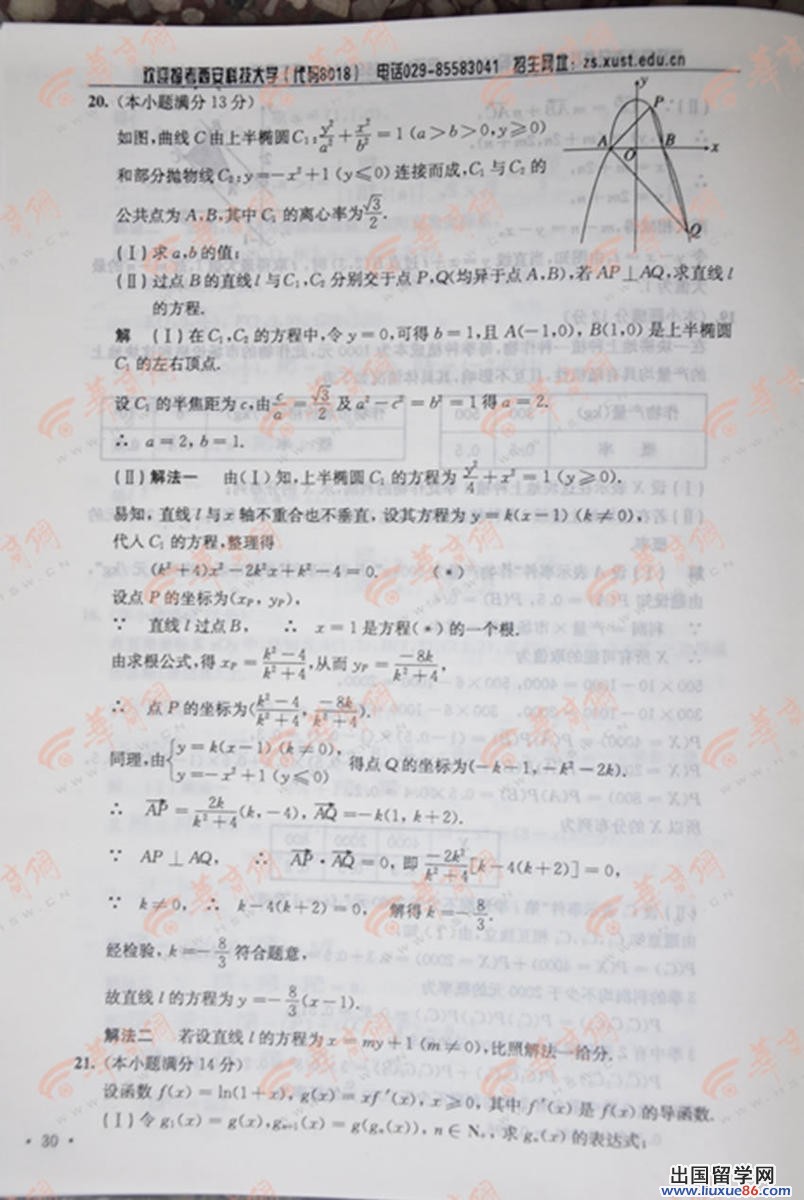 欢迎报考西安科技大学(代码8018) 电话029-85583041 招生网址:zs.xust.edu.cn
20.(本小题满分13分)
如图,曲线C由上半椭圆C₁:y²/a²+x²/b²=1(a>b>0,y≥0)
和部分抛物线C₂:y=-x²+1(y≤0)连接而成,C₁与C₂的
公共点为A,B,其中C₁的离心率为√3/2.
y
P
A
O
B
x
Q
(Ⅰ)求a,b的值;
(Ⅱ)过点B的直线l与C₁,C₂分别交于点P,Q(均异于点A,B),若AP⊥AQ,求直线l
的方程.
解 (Ⅰ)在C₁,C₂的方程中,令y=0,可得b=1,且A(-1,0),B(1,0)是上半椭圆
C₁的左右顶点.
设C₁的半焦距为c,由c/a=√3/2及a²-c²=b²=1得a=2.
∴ a=2,b=1.
(Ⅱ)解法一 由(Ⅰ)知,上半椭圆C₁的方程为y²/4+x²=1(y≥0).
易知,直线l与x轴不重合也不垂直,设其方程为y=k(x-1)(k≠0),
代入C₁的方程,整理得
(k²+4)x²-2k²x+k²-4=0. (*)
设点P的坐标为(x_P,y_P),
∵ 直线l过点B, ∴ x=1是方程(*)的一个根.
由求根公式,得x_P=(k²-4)/(k²+4),从而y_P=(-8k)/(k²+4),
∴ 点P的坐标为((k²-4)/(k²+4),(-8k)/(k²+4)).
同理,由{y=k(x-1)(k≠0), y=-x²+1(y≤0) 得点Q的坐标为(-k-1,-k²-2k).
∴ AP→=2k/(k²+4)(k,-4),AQ→=-k(1,k+2).
∵ AP⊥AQ, ∴ AP→·AQ→=0,即(-2k²)/(k²+4)[k-4(k+2)]=0,
∵ k≠0, ∴ k-4(k+2)=0, 解得k=-8/3.
经检验,k=-8/3符合题意,
故直线l的方程为y=-8/3(x-1).
解法二 若设直线l的方程为x=my+1(m≠0),比照解法一给分.
21.(本小题满分14分)
设函数f(x)=ln(1+x),g(x)=xf′(x),x≥0,其中f′(x)是f(x)的导函数.
(Ⅰ)令g₁(x)=g(x),gₙ₊₁(x)=g(gₙ(x)),n∈N₊,求gₙ(x)的表达式;
·30·
出国留学网
www.liuxue86.com